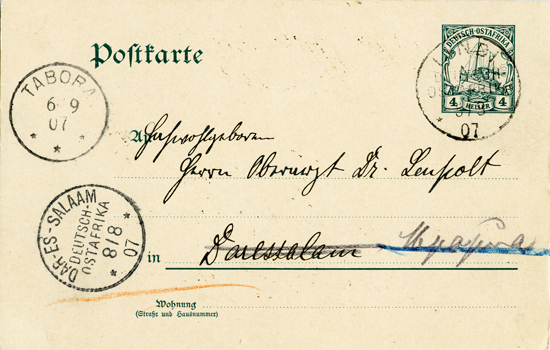 Postkarte
DEUTSCH-OSTAFRIKA
4 HELLER 4
07
TABORA
6 9
07
An
Hochwohlgeboren
Herrn Oberarzt Dr.
DAR-ES-SALAAM
DEUTSCH-
OSTAFRIKA
8/8
07
in Daressalam
Wohnung
(Straße und Hausnummer)